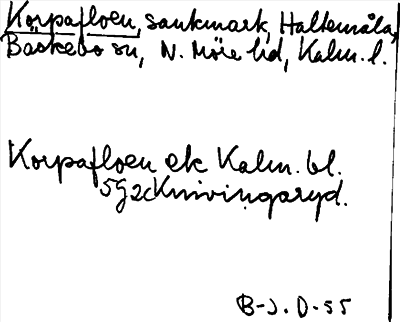 Korpafloen, sankmark, Haltemåla,
Bäckebo sn, N. Möre hd, Kalm. l.
Korpafloen ek Kalm. bl.
5G 2c Knivingaryd.
B-J. O. 55